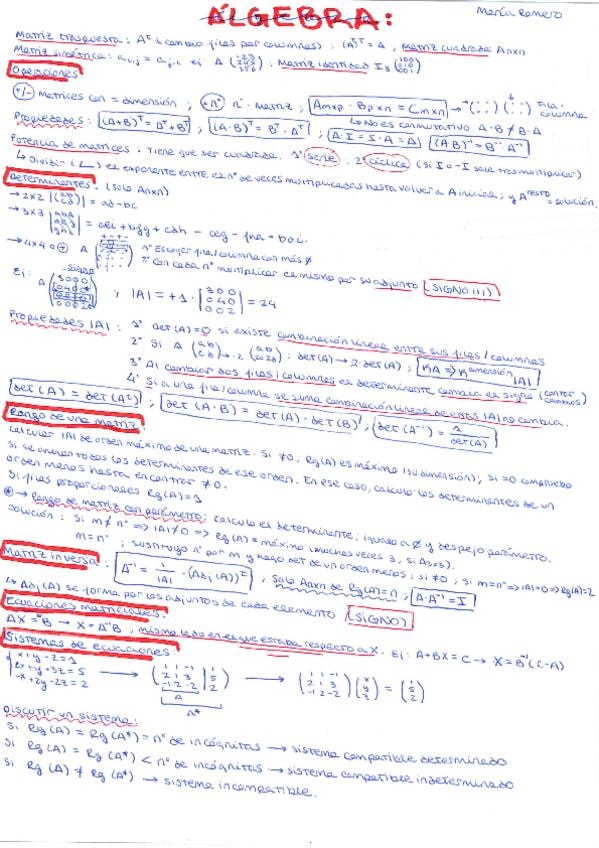 ÁLGEBRA:
María Romero
Matriz traspuesta: Aᵗ (cambio filas por columnas): (Aᵗ)ᵗ = A, Matriz cuadrada Anxn
Matriz simétrica: aᵢ,ⱼ = aⱼ,ᵢ ej A ; Matriz identidad I₃ (100 010 001)
Operaciones
+/- matrices con = dimensión ; ·nº nº·matriz ; Amxp · Bpxn = Cmxn → Fila · columna
↳ No es conmutativo A·B ≠ B·A
Propiedades: (A+B)ᵀ = Aᵀ+Bᵀ ; (A·B)ᵀ = Bᵀ·Aᵀ ; A·I = I·A = A ; (A·B)⁻¹ = B⁻¹·A⁻¹
Potencia de matrices: Tiene que ser cuadrada. 1º serie; 2º cíclica (si I o -I sale tras multiplicar)
↳ Dividir (∟) el exponente entre el nº de veces multiplicadas hasta volver a A inicial; y Aʳᵉˢᵗᵒ = solución.
Determinantes: (solo Anxn)
→ 2x2 |ab cd| = ad-bc
→ 3x3 = aei + bfg + cdh - ceg - fha - bdi.
→ 4x4 o ⊕ A 1º Escoger fila/columna con más 0
2º Con cada nº multiplicar el mismo por su adjunto (¡SIGNO!!!)
Ej: A ; |A| = +1 · |300 040 002| = 24
Propiedades |A|: 1º det(A)=0 si existe combinación lineal entre sus filas/columnas
2º Si A (ab cd) →·2 (ab 2c2d) : det(A) → 2·det(A) ; KA ⇒ Kᵈⁱᵐᵉⁿˢⁱᵒⁿ |A|
3º Al cambiar dos filas/columnas el determinante cambia el signo (contar cambios)
4º Si a una fila/columna se suma combinación lineal de otras |A| no cambia.
det(A) = det(Aᵗ) ; det(A·B) = det(A)·det(B) ; det(A⁻¹) = 1/det(A)
Rango de una matriz:
Calcular |A| de orden máximo de una matriz. Si ≠0, Rg(A) es máximo (su dimensión); si =0 compruebo
si se anulan todos los determinantes de ese orden. En ese caso, calculo los determinantes de un
orden menos hasta encontrar ≠0.
Si filas proporcionales Rg(A)=1
→ Rango de matriz con parámetro: calculo el determinante, igualo a 0 y despejo parámetro.
Solución: Si m ≠ nº => |A| ≠ 0 => Rg(A) = máximo (muchas veces 3, si A3x3).
m = nº ; sustituyo nº por m y hago det de un orden menos, si ≠0 ; si m=nº => |A|=0 => Rg(A)=2
Matriz inversa: A⁻¹ = 1/|A| · (Adj(A))ᵗ ; Solo Anxn de Rg(A)=n ; A·A⁻¹ = I
↳ Adj(A) se forma por los adjuntos de cada elemento (SIGNO)
Ecuaciones matriciales:
AX = B → X = A⁻¹B, mismo lado en el que estaba respecto a X. Ej: A+BX=C → X=B⁻¹(C-A)
Sistemas de ecuaciones:
x+y-z=1
2x+y+3z=5
-x+2y-2z=2
→ (1 1 -1 | 1 ; 2 1 3 | 5 ; -1 2 -2 | 2) → (1 1 -1 ; 2 1 3 ; -1 2 -2) (x y z) = (1 5 2)
A
A*
Discutir un sistema:
Si Rg(A) = Rg(A*) = nº de incógnitas → sistema compatible determinado
Si Rg(A) = Rg(A*) < nº de incógnitas → sistema compatible indeterminado
Si Rg(A) ≠ Rg(A*) → sistema incompatible.